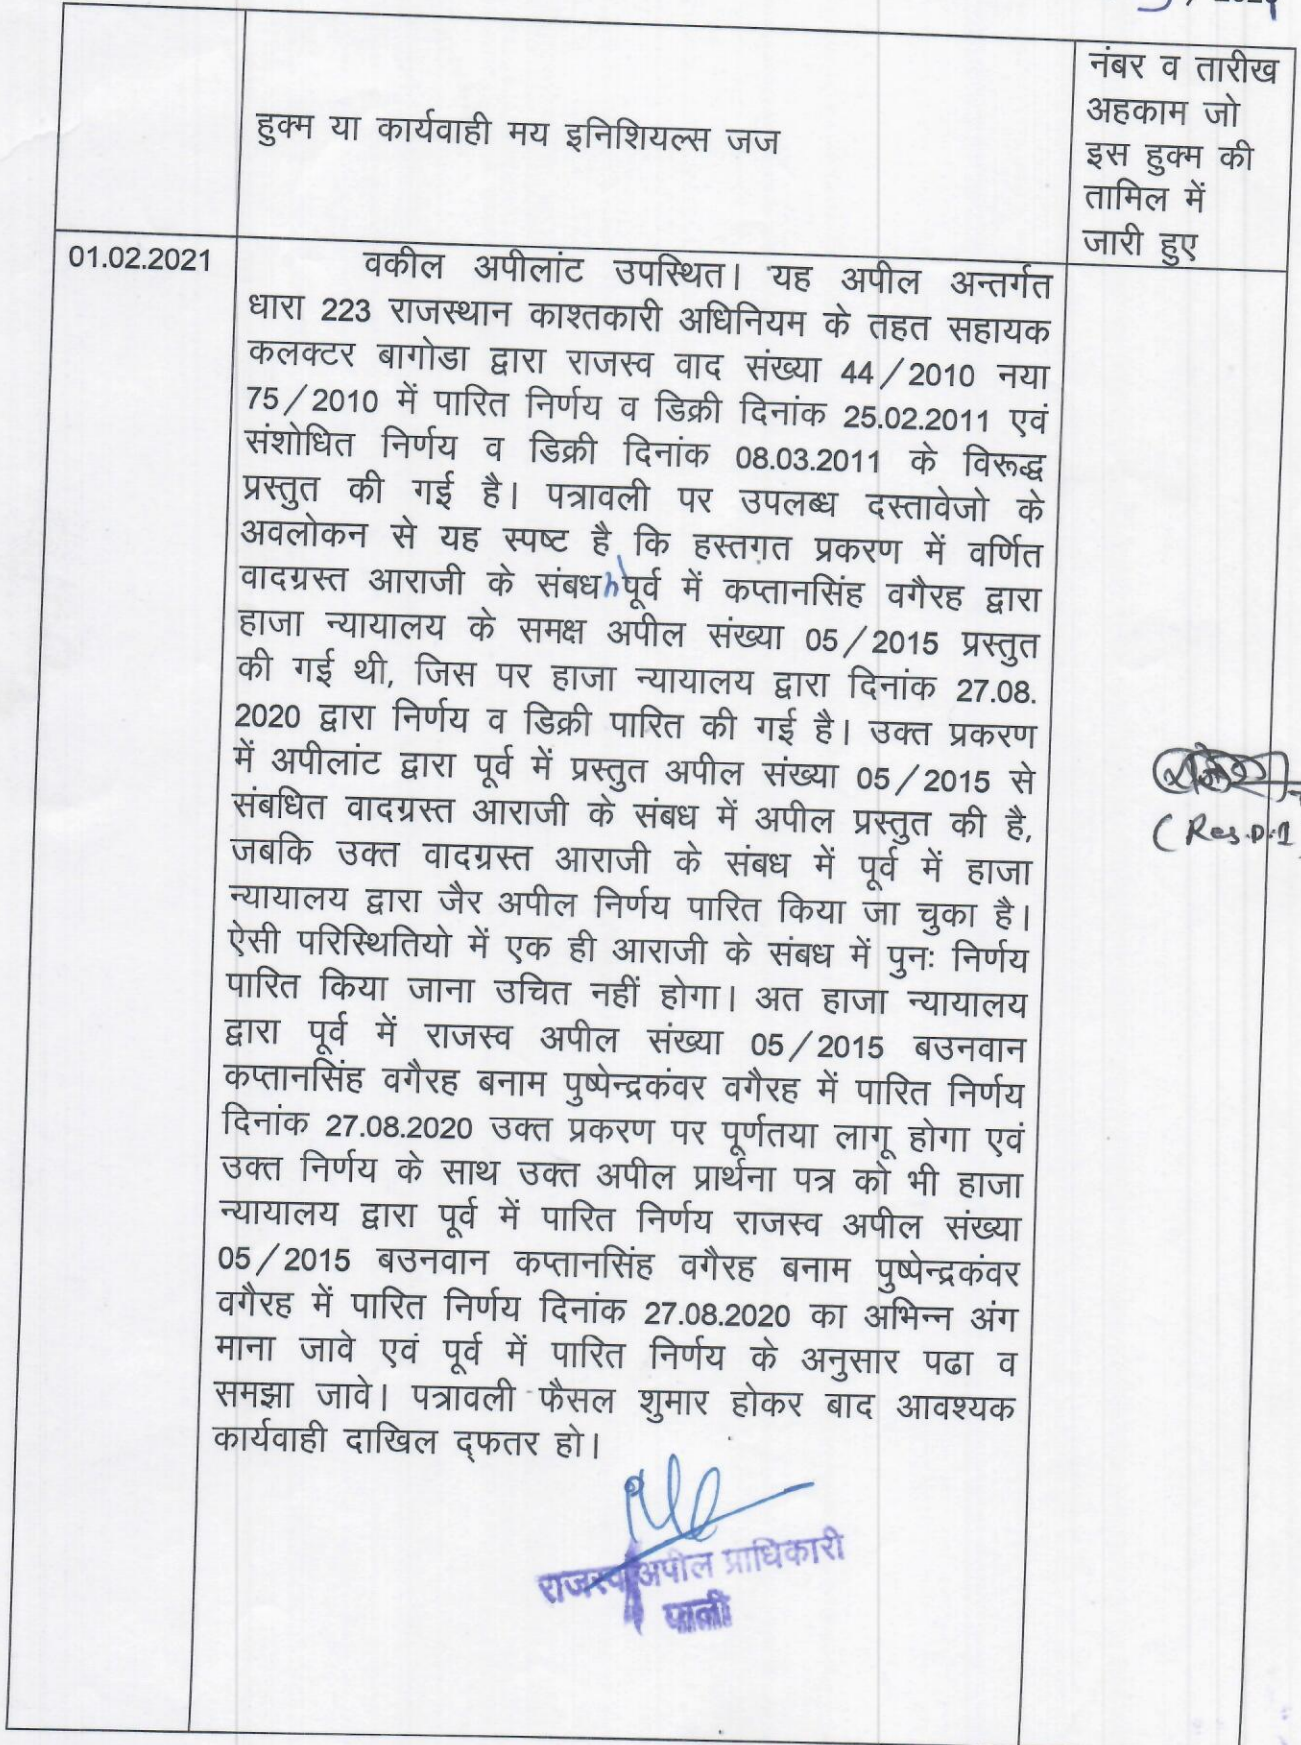 हुक्म या कार्यवाही मय इनिशियल्स जज
नंबर व तारीख
अहकाम जो
इस हुक्म की
तामिल में
जारी हुए
01.02.2021
वकील अपीलांट उपस्थित। यह अपील अन्तर्गत
धारा 223 राजस्थान काश्तकारी अधिनियम के तहत सहायक
कलक्टर बागोडा द्वारा राजस्व वाद संख्या 44/2010 नया
75/2010 में पारित निर्णय व डिक्री दिनांक 25.02.2011 एवं
संशोधित निर्णय व डिक्री दिनांक 08.03.2011 के विरूद्ध
प्रस्तुत की गई है। पत्रावली पर उपलब्ध दस्तावेजो के
अवलोकन से यह स्पष्ट है कि हस्तगत प्रकरण में वर्णित
वादग्रस्त आराजी के संबध पूर्व में कप्तानसिंह वगैरह द्वारा
हाजा न्यायालय के समक्ष अपील संख्या 05/2015 प्रस्तुत
की गई थी, जिस पर हाजा न्यायालय द्वारा दिनांक 27.08.
2020 द्वारा निर्णय व डिक्री पारित की गई है। उक्त प्रकरण
में अपीलांट द्वारा पूर्व में प्रस्तुत अपील संख्या 05/2015 से
संबधित वादग्रस्त आराजी के संबध में अपील प्रस्तुत की है,
जबकि उक्त वादग्रस्त आराजी के संबध में पूर्व में हाजा
न्यायालय द्वारा जैर अपील निर्णय पारित किया जा चुका है।
ऐसी परिस्थितियो में एक ही आराजी के संबध में पुनः निर्णय
पारित किया जाना उचित नहीं होगा। अत हाजा न्यायालय
द्वारा पूर्व में राजस्व अपील संख्या 05/2015 बउनवान
कप्तानसिंह वगैरह बनाम पुष्पेन्द्रकंवर वगैरह में पारित निर्णय
दिनांक 27.08.2020 उक्त प्रकरण पर पूर्णतया लागू होगा एवं
उक्त निर्णय के साथ उक्त अपील प्रार्थना पत्र को भी हाजा
न्यायालय द्वारा पूर्व में पारित निर्णय राजस्व अपील संख्या
05/2015 बउनवान कप्तानसिंह वगैरह बनाम पुष्पेन्द्रकंवर
वगैरह में पारित निर्णय दिनांक 27.08.2020 का अभिन्न अंग
माना जावे एवं पूर्व में पारित निर्णय के अनुसार पढा व
समझा जावे। पत्रावली फैसल शुमार होकर बाद आवश्यक
कार्यवाही दाखिल द्फतर हो।
(Res.D.1
राजस्व अपील प्राधिकारी
पाली